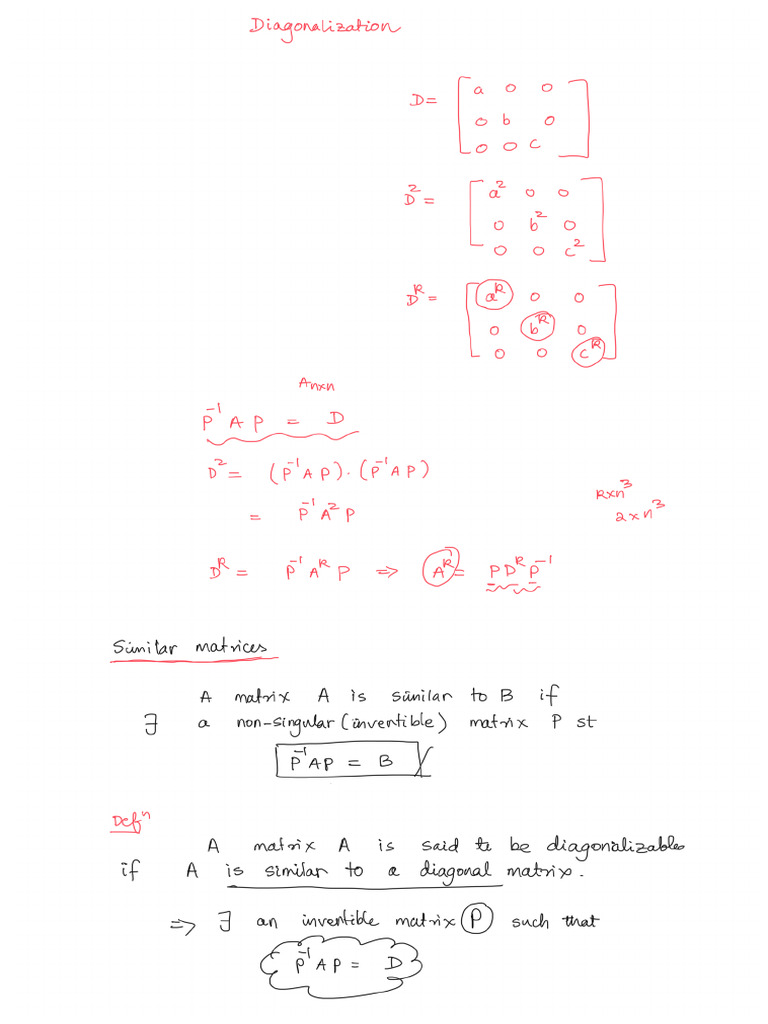 Diagonalization
D = [ a 0 0
0 b 0
0 0 c ]
D² = [ a² 0 0
0 b² 0
0 0 c² ]
Dᵏ = [ aᵏ 0 0
0 bᵏ 0
0 0 cᵏ ]
Aₙₓₙ
P⁻¹ A P = D
D² = (P⁻¹AP)·(P⁻¹AP)
= P⁻¹A²P
k×n³
2×n³
Dᵏ = P⁻¹AᵏP ⇒ Aᵏ = PDᵏP⁻¹
Similar matrices
A matrix A is similar to B if
∃ a non-singular (invertible) matrix P st
P⁻¹AP = B
Defⁿ
A matrix A is said to be diagonalizables
if A is similar to a diagonal matrix.
⇒ ∃ an invertible matrix P such that
P⁻¹AP = D